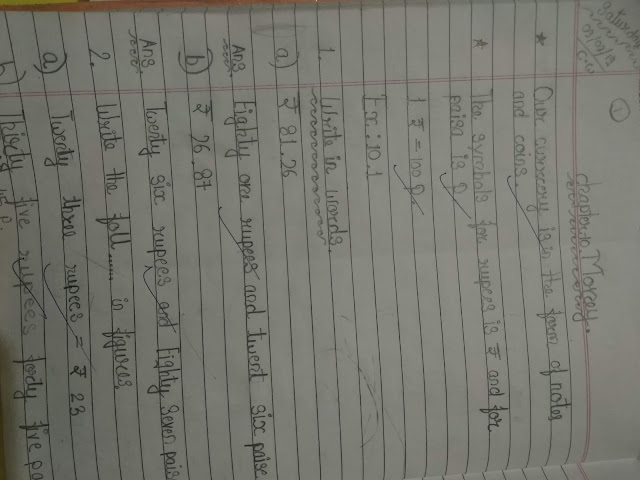 ①
Saturday
chapter:10 Money
★ Our currency is in the form of notes
and coins.
★ The symbols for rupees is ₹ and for
paisa is p
1 ₹ = 100 p
Ex:10.1
1. Write in words.
a) ₹ 81.26
Ans Eighty one rupees and twent six paise
b) ₹ 26.87
Ans Twenty six rupees and Eighty seven pais
2. Write the foll...... in figures
a) Twenty three rupees = ₹ 23
b) Thirty five rupees fody five pa